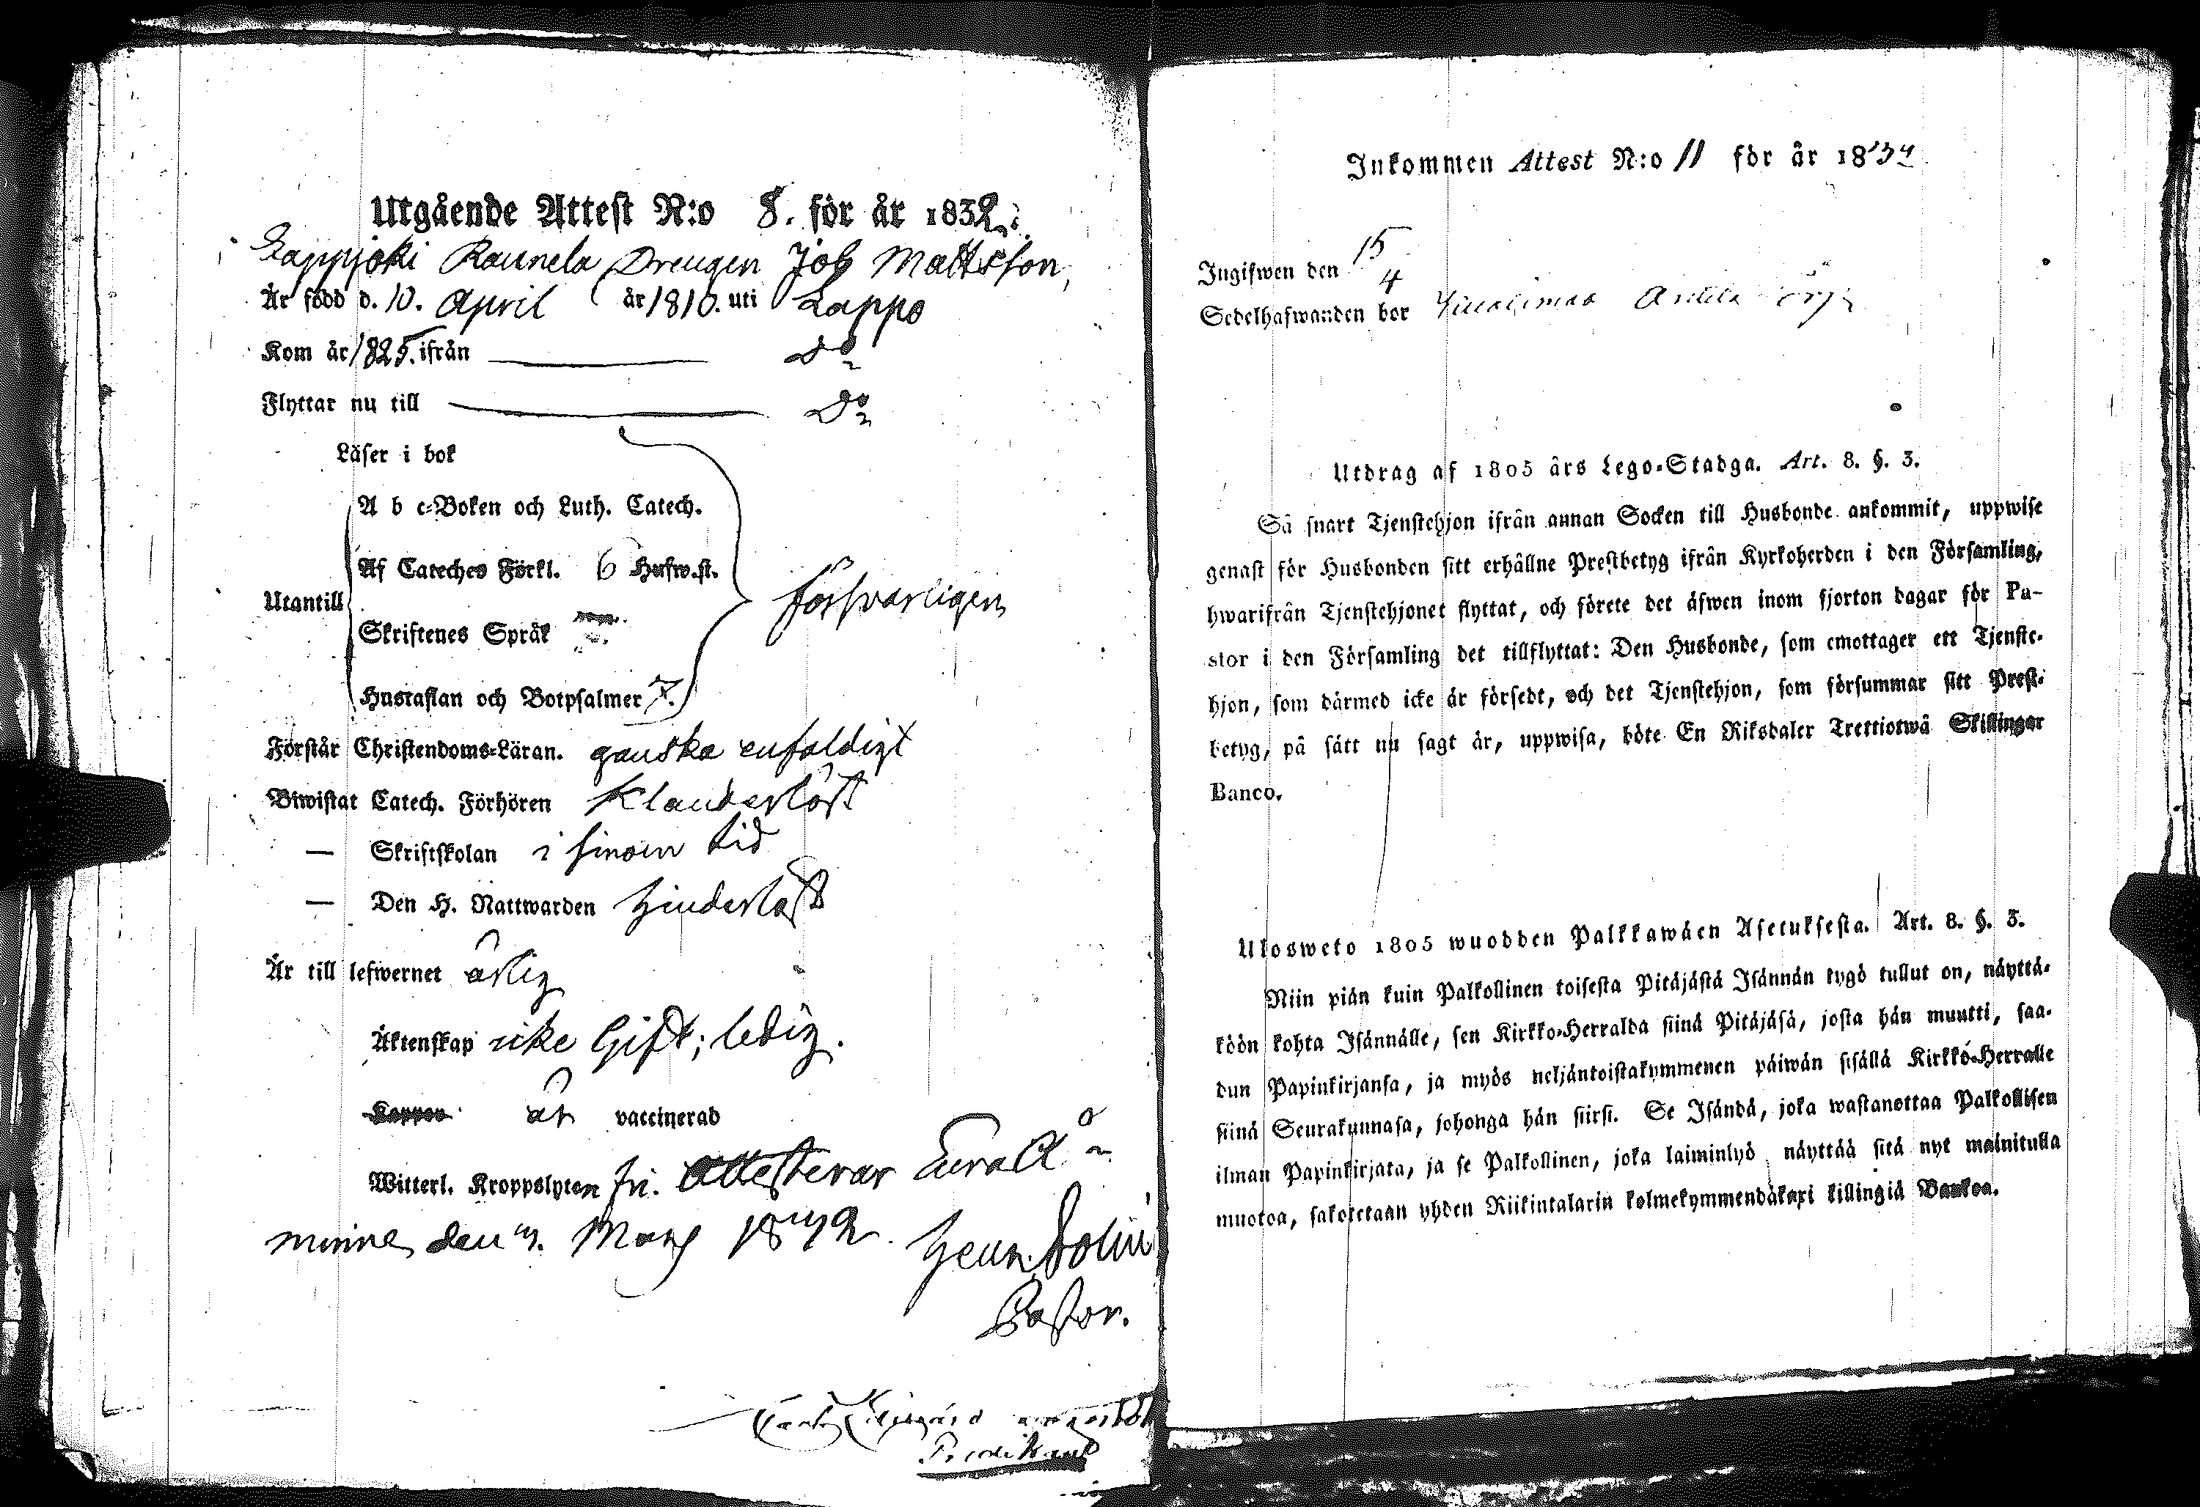 Utgående Attest N:o 8. för år 1832.
Lappjoki Raunela Drengen Job Mattsson,
Är född d. 10. April år 1810. uti Lappo
Kom år 1825. ifrån Do
Flyttar nu till Do
Läser i bok
A b c-Boken och Luth. Catech.
Af Cateches Förkl. 6 Hufw.st.
Utantill försvarligen
Skriftenes Språk
Hustaflan och Botpsalmer 7.
Förstår Christendoms-Läran. ganska enfaldigt
Biwistat Catech. Förhören Klanderlöst
— Skriftskolan i sinom tid
— Den H. Nattwarden hinderlöst
Är till lefwernet ärlig
Äktenskap icke Gift; ledig.
Koppor är vaccinerad
Witterl. Kroppslyten fri. Attesterar Eura Å
minne den Mars
Pastor.
Predikant
Inkommen Attest N:o 11 för år 1834
Ingifwen den 15/4
Sedelhafwanden bor
Utdrag af 1805 års Lego-Stadga. Art. 8. §. 3.
Så snart Tjenstehjon ifrån annan Socken till Husbonde ankommit, uppwise
genast för Husbonden sitt erhållne Prestbetyg ifrån Kyrkoherden i den Församling,
hwarifrån Tjenstehjonet flyttat, och förete det äfwen inom fjorton dagar för Pa-
stor i den Församling det tillflyttat: Den Husbonde, som emottager ett Tjenste-
hjon, som därmed icke är försedt, och det Tjenstehjon, som försummar sitt Prest-
betyg, på sätt nu sagt är, uppwisa, böte En Riksdaler Trettiotwå Skillingar
Banco.
Ulosweto 1805 wuodden Palkkawäen Asetuksesta. Art. 8. §. 3.
Niin piän kuin Palkollinen toisesta Pitäjästä Isännän tygö tullut on, näyttä-
köön kohta Isännälle, sen Kirkko-Herralda siinä Pitäjäsä, josta hän muutti, saa-
dun Papinkirjansa, ja myös neljäntoistakymmenen päiwän sisällä Kirkko-Herralle
siinä Seurakunnasa, johonga hän siirsi. Se Isändä, joka wastanottaa Palkollisen
ilman Papinkirjata, ja se Palkollinen, joka laiminlyö näyttää sitä nyt mainitulla
muotoa, sakotetaan yhden Riikintalarin kolmekymmendäkaxi killingiä Bankoa.